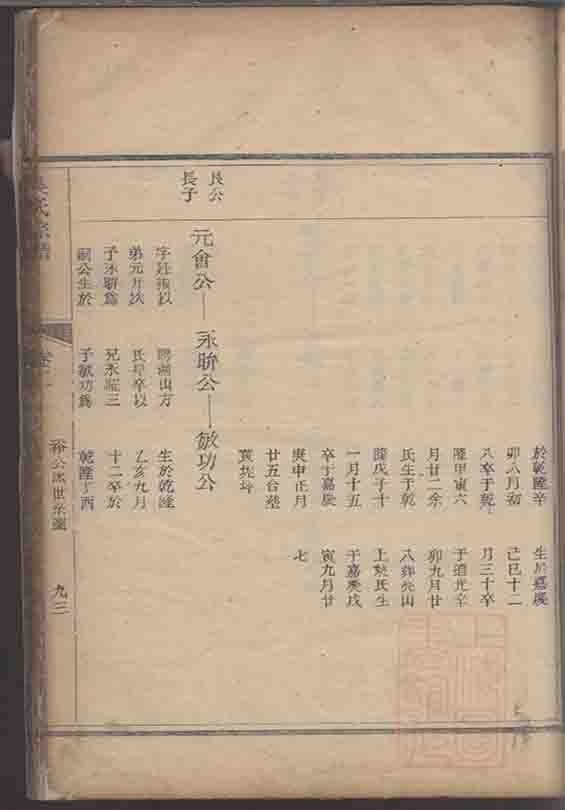 於乾隆辛
卯八月初
八卒于乾
隆甲寅六
月廿二余
氏生于乾
隆戊子十
一月十五
卒于嘉慶
庚申正月
廿五合塟
生於嘉慶
己巳十二
月三十卒
于道光辛
卯九月廿
八葬尖山
上樊氏生
于嘉慶戊
寅九月廿
七
長公
長子
元會公—永聨公—敏功公
弟元开次
子永聨爲
嗣公生於
氏早卒以
兄永
三
子敏功爲
生於乾隆
乙亥九月
十二卒於
乾隆丁酉
裕公派世系圖
九三